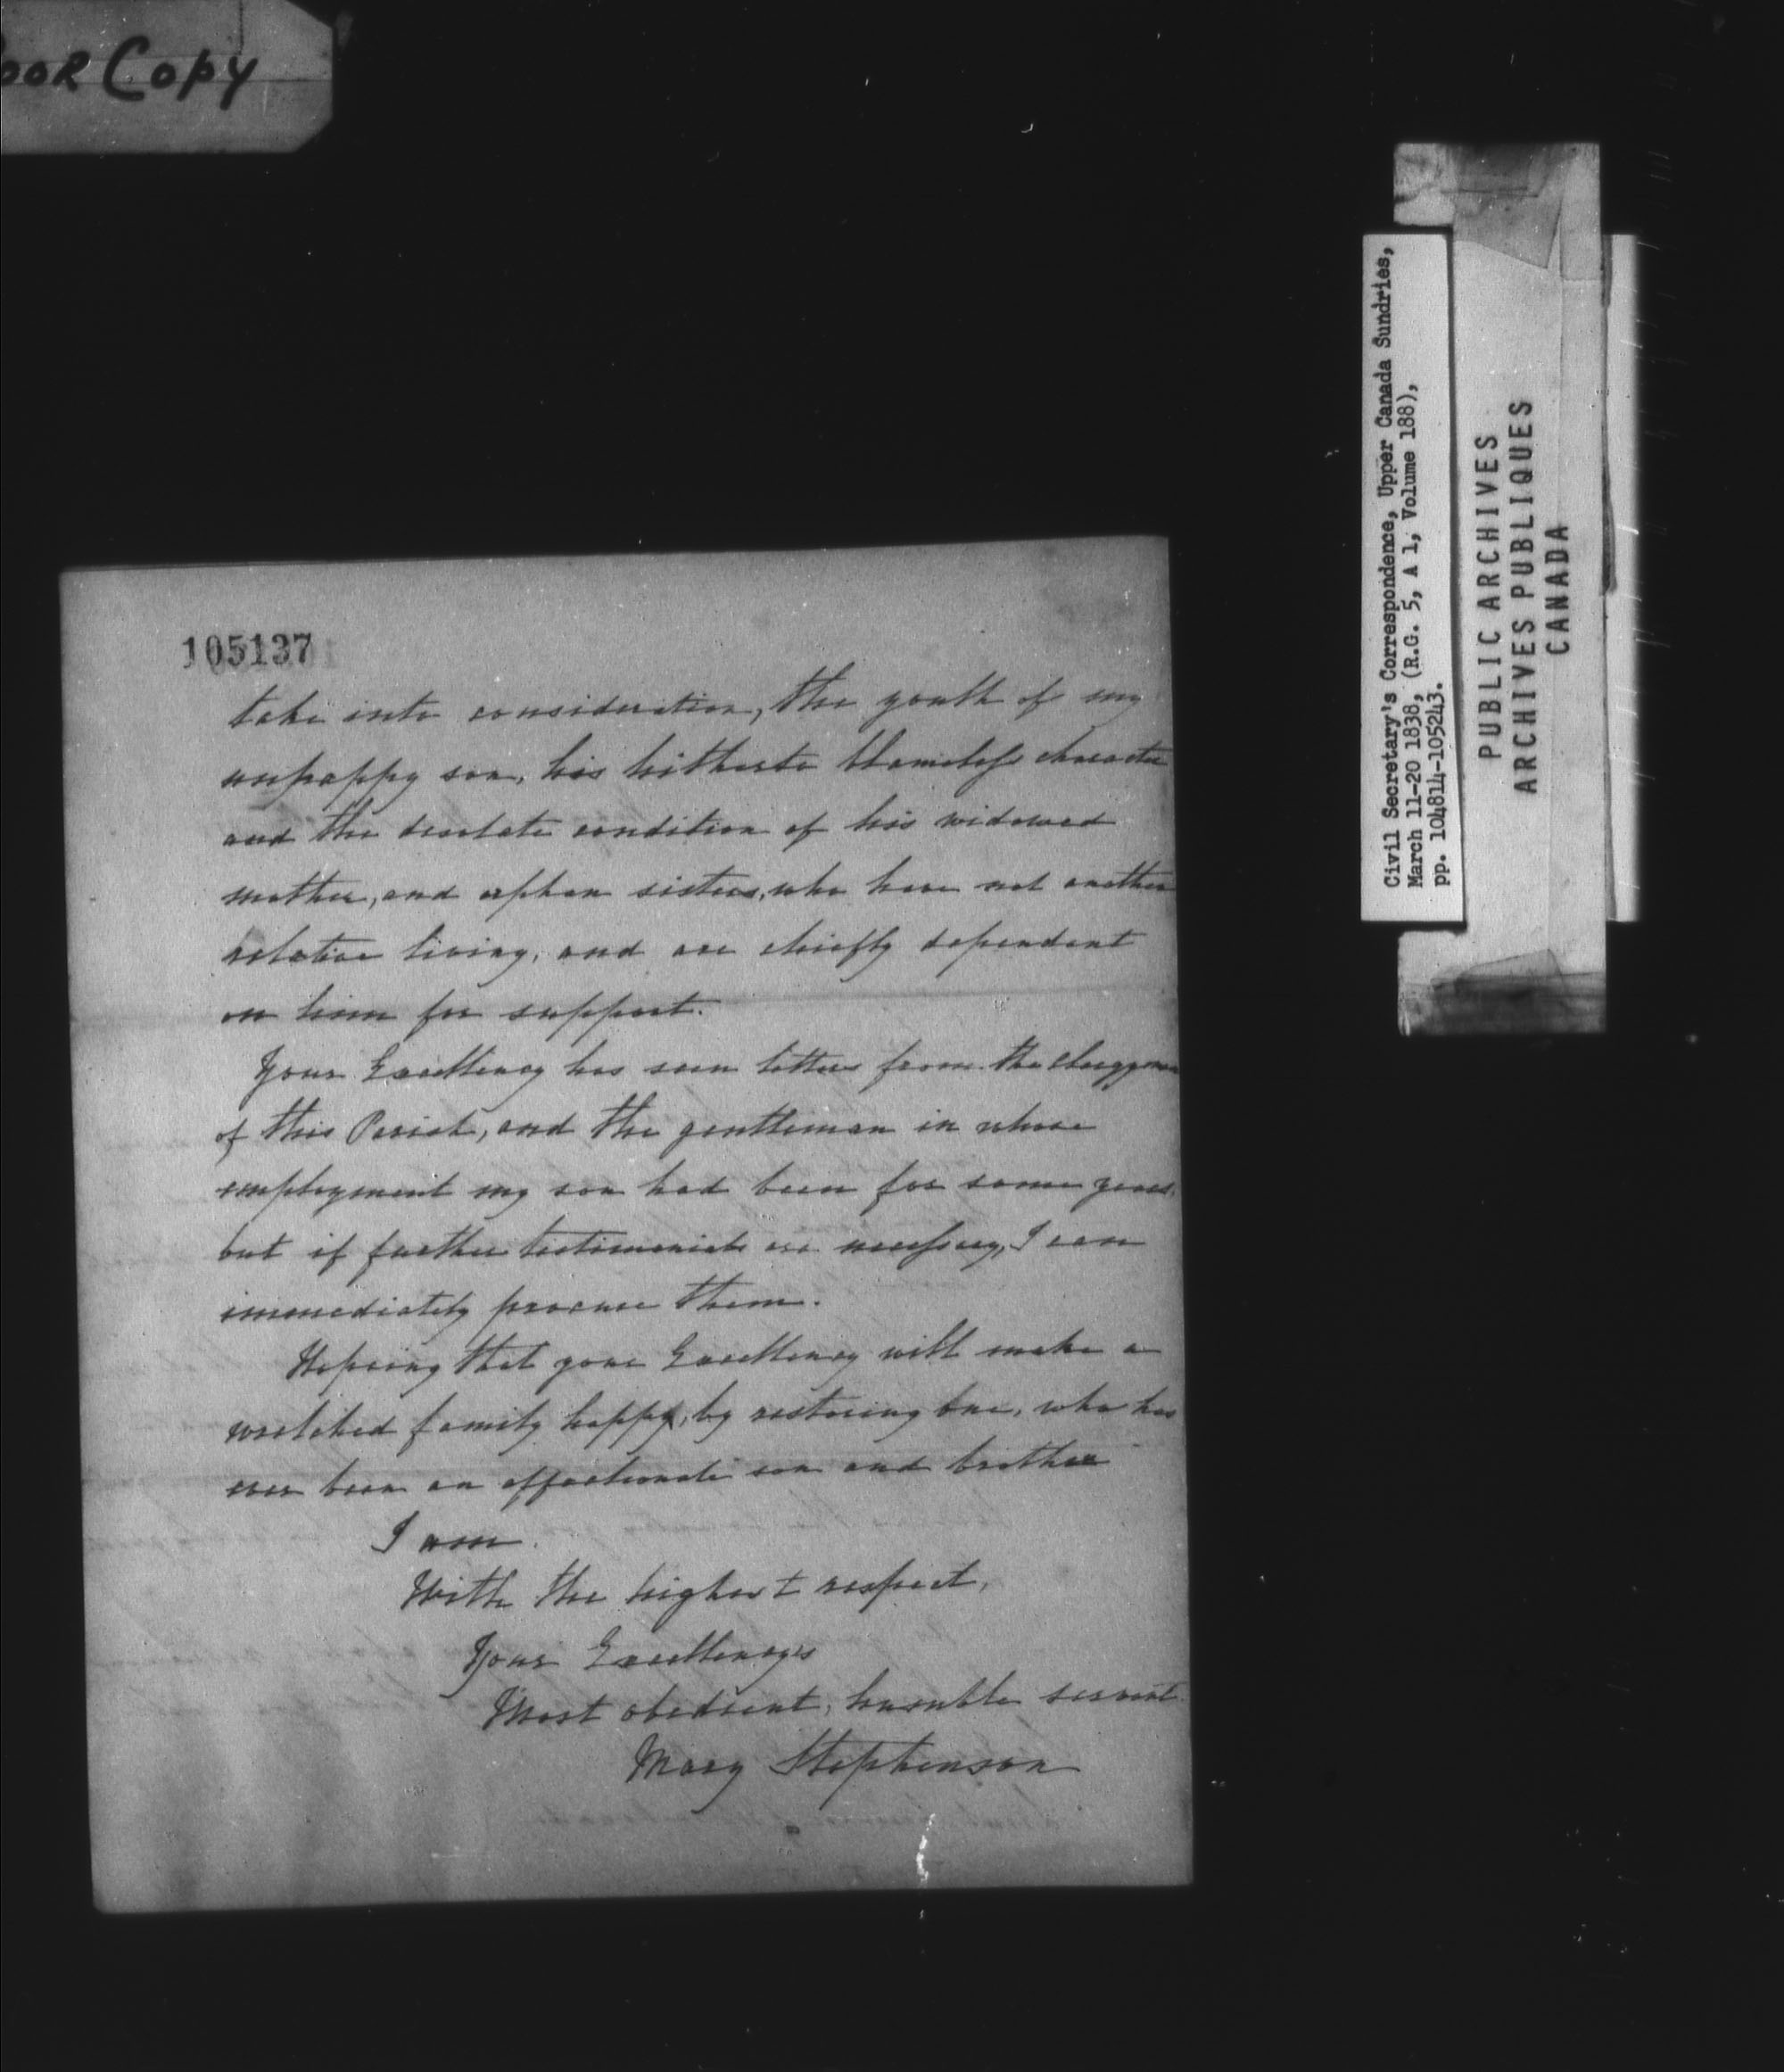 oor Copy
105137
take into consideration, the youth of my
unhappy son, his hitherto blameless character
and the desolate condition of his widowed
mother, and orphan sisters, who have not another
relative living, and are chiefly dependent
on him for support.
Your Excellency has seen letters from the clergyman
of this Parish, and the gentleman in whose
employment my son had been for some years,
but if further testimonials are necessary, I can
immediately procure them.
Hopeing that your Excellency will make a
wretched family happy, by restoring one, who has
ever been an affectionate son and brother
I am.
With the highest respect,
Your Excellencys
Most obedient, humble servant
Mary Stephenson
Civil Secretary's Correspondence, Upper Canada Sundries,
March 11-20 1838, (R.G. 5, A 1, Volume 188),
pp. 104814-105243.
PUBLIC ARCHIVES
ARCHIVES PUBLIQUES
CANADA